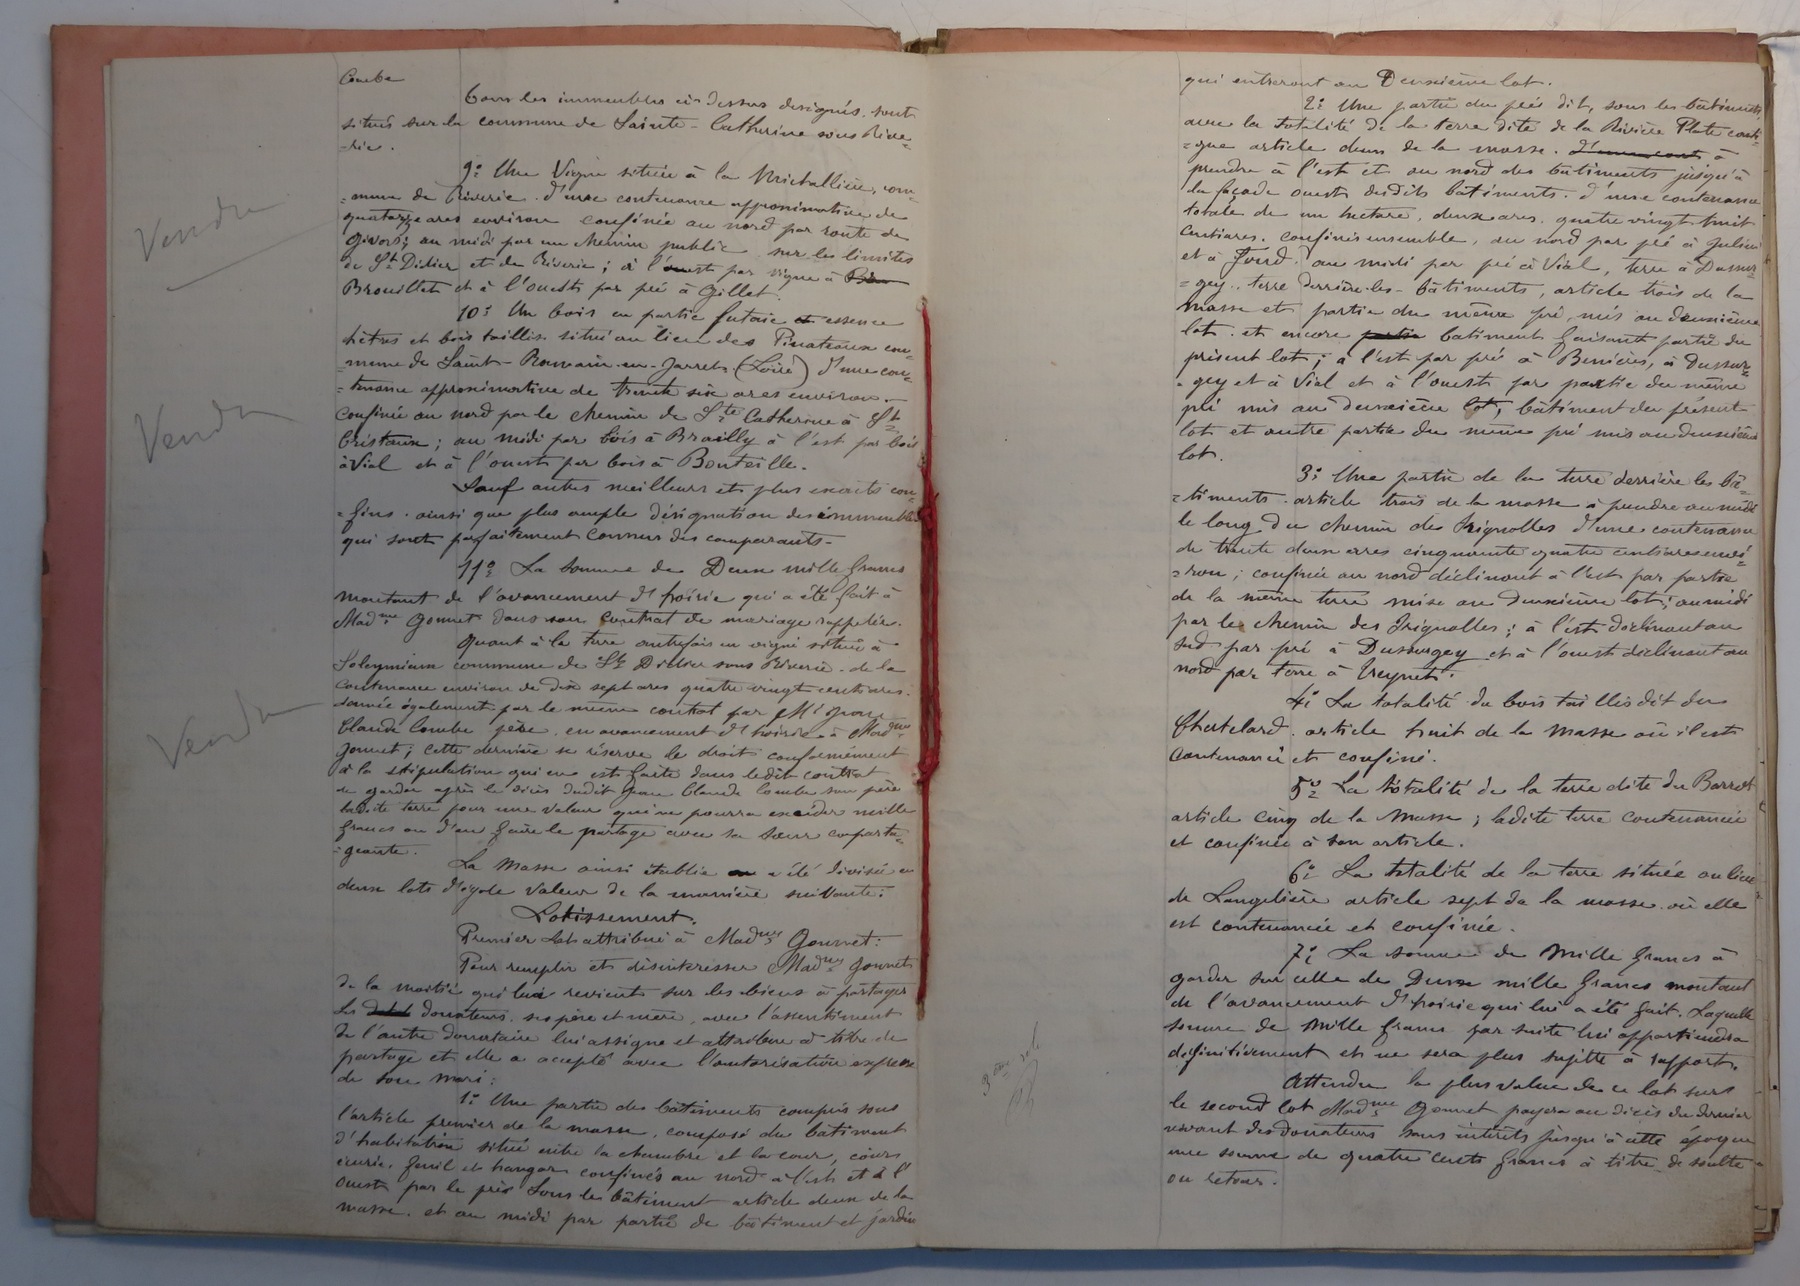 Combe
Tous les immeubles ci-dessus désignés, sont
situés sur la commune de Sainte-Catherine sous Rive=
=rie.
9° Une Vigne située à la Michallière, com=
=mune de Riverie d'une contenance approximative de
quatorze ares environ confinée au nord par route de
Givors; au midi par un chemin public sur les limites
de St Didier et de Riverie; à l'ouest par vigne à
Brouillet et à l'ouest par pré à Gillet.
10° Un bois en partie futaie et essence
hêtres et bois taillis situé au lieu des Pinateaux com=
=mune de Saint-Romain-en-Jarrets (Loire) d'une con=
=tenance approximative de trente six ares environ.
Confinée au nord par le chemin de Ste Catherine à St
Cristaux; au midi par bois à Brailly à l'est par bois
à Vial et à l'ouest par bois à Bonteille.
Sauf autres meilleurs et plus exacts con=
=fins. ainsi que plus ample désignation des immeubles
qui sont parfaitement connus des comparants-
11° La somme de Deux mille francs
montant de l'avancement d'hoirie qui a été fait à
Madme Gonnet dans son contrat de mariage rappelée.
Quant à la terre autrefois en vigne située à
commune de St Didier sous Riverie - de la
contenance environ de dix sept ares quatre vingt centiares.
donnée également par le même contrat par Mr Jean
Claude Combe père, en avancement d'hoirie à Madme
Gonnet; cette dernière se réserve le droit conformément
à la stipulation qui en est faite dans ledit contrat
de garder après le décès dudit Jean Claude Combe son père
ladite terre pour une valeur qui ne pourra excéder mille
francs ou d'en faire le partage avec sa sœur coparta=
=geante.
La masse ainsi établie a été divisée en
deux lots d'égale valeur de la manière suivante:
Lotissement.
Premier Lot attribué à Madme Gonnet:
Pour remplir et désintéresser Madme Gonnet
de la moitié qui lui revient sur les biens à partager
Les donateurs, ses père et mère, avec l'assentiment
de l'autre donataire lui assigne et attribue à titre de
partage et elle a accepté avec l'autorisation expresse
de son mari:
1° Une partie des bâtiments compris sous
l'article premier de la masse, composé du bâtiment
d'habitation situé entre la chambre et la cour, cours
écurie, fenil et hangar confinés au nord à l'est et à l'
ouest par le pré Sous les bâtiment article deux de la
masse. et au midi par partie de bâtiment et jardin
Vendu
Vendu
Vendu
qui entreront au Deuxième lot.
2° Une partie du pré dit, sous les bâtiments
avec la totalité de la terre dite de la Rivière Plate conti=
=gue article deux de la masse. à
prendre à l'est et au nord des bâtiments jusqu'à
la façade ouest desdits bâtiments. d'une contenance
totale de un hectare, deux ares, quatre vingt huit
centiares. confinés ensemble, au nord par pré à Julien
et à Joird. au midi par pré à Vial, terre à Dussur=
=gey. terre derrière-les-bâtiments, article trois de la
masse et partie du même pré, mis au deuxième
lot. et encore bâtiment faisant partie du
présent lot; à l'est par pré à Benières, à Dussur=
=gey et à Vial et à l'ouest par partie du même
pré mis au deuxième lot, bâtiment du présent
lot et autre partie du même pré mis au deuxième
lot.
3° Une partie de la terre derrière les bâ=
=timents. article trois de la masse à prendre au midi
le long du chemin des Trignolles d'une contenance
de trente deux ares cinquante quatre centiares envi=
=ron; confinée au nord déclinant à l'est par partie
de la même terre mise au deuxième lot; au midi
par le chemin des Trignolles; à l'est déclinant au
sud par pré à Dussurgey et à l'ouest déclinant au
nord par terre à Vreynet.
4° La totalité du bois taillis dit du
Chatelard. article huit de la masse où il est
contenancé et confiné.
5° La totalité de la terre dite du Barrot
article cinq de la masse; ladite terre contenancée
et confinée à son article.
6° La totalité de la terre située au lieu
de Langelière article sept de la masse où elle
est contenancée et confinée.
7° La somme de Mille francs à
garder sur celle de Deux mille francs montant
de l'avancement d'hoirie qui lui a été fait. Laquelle
somme de Mille francs par suite lui appartiendra
définitivement et ne sera plus sujette à rapport.
Attendu la plus value de ce lot sur
le second lot Madme Gonnet payera au décès du dernier
vivant des donateurs sans intérêts jusqu'à cette époque
une somme de quatre cents francs à titre de soulte
ou retour.
3ème rôle